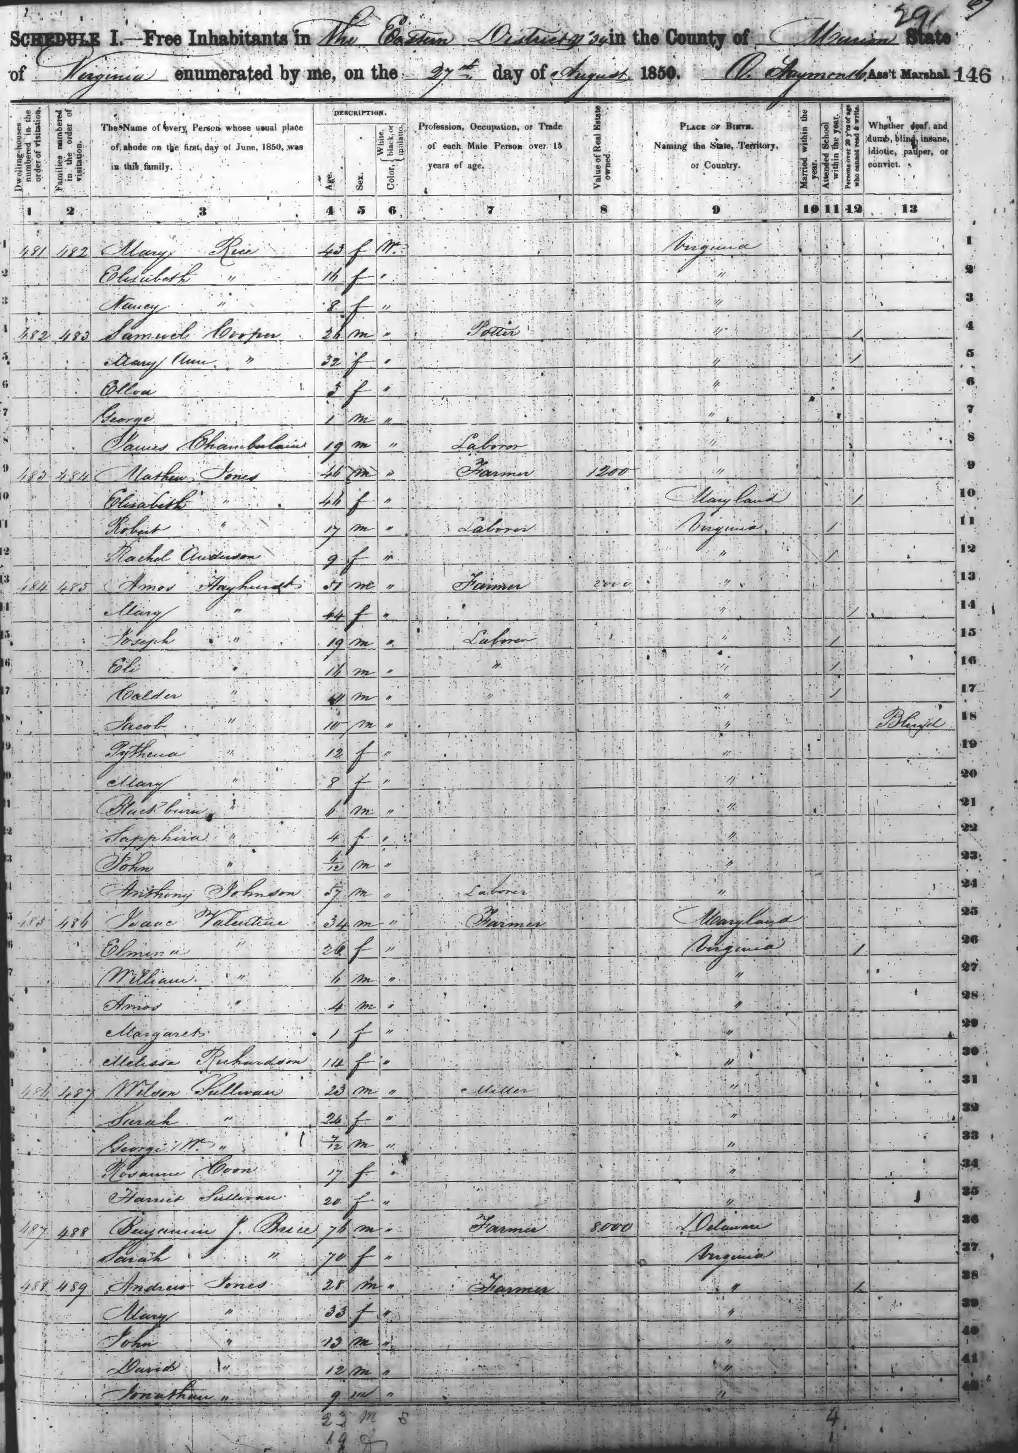 291
SCHEDULE I.—Free Inhabitants in The Eastern District in the County of Marion State
of Virginia enumerated by me, on the 27th day of August 1850. Ass't Marshal. 146
Dwelling-houses numbered in the order of visitation.
Families numbered in the order of visitation.
The Name of every Person whose usual place of abode on the first day of June, 1850, was in this family.
DESCRIPTION.
Age.
Sex.
Color, White, black, or mulatto.
Profession, Occupation, or Trade of each Male Person over 15 years of age.
Value of Real Estate owned.
PLACE OF BIRTH. Naming the State, Territory, or Country.
Married within the year.
Attended School within the year.
Persons over 20 y'rs of age who cannot read & write.
Whether deaf and dumb, blind, insane, idiotic, pauper, or convict.
1 2 3 4 5 6 7 8 9 10 11 12 13
1 481 482 Mary Rice 43 f W. Virginia 1
2 Elizabeth " 16 f " " 2
3 Nancy " 8 f " " 3
4 482 483 Samuel Cooper 26 m " Potter " 1 4
5 Mary Ann " 32 f " " 1 5
6 f " " 6
7 George 1 m " " 7
8 James Chamberlain 19 m " Laborer " 8
9 483 484 Mathew Jones 46 m " Farmer 1200 " 9
10 Elizabeth " 44 f " Maryland 1 10
11 Robert " 17 m " Laborer Virginia 1 11
12 Rachel Anderson 9 f " " 1 12
13 484 485 Amos Hayhurst 51 m " Farmer 2000 " 13
14 Mary " 44 f " " 1 14
15 Joseph " 19 m " Laborer " 1 15
16 Eli " 16 m " " " 1 16
17 Calder " m " " " 1 17
18 Jacob " 10 m " " Blind 18
19 " 12 f " " 19
20 Mary " 8 f " " 20
21 " 6 m " " 21
22 Sapphira " 4 f " " 22
23 John " m " " 23
24 Anthony Johnson 57 m " Laborer " 24
25 485 486 Isaac Valentine 34 m " Farmer Maryland 25
26 " 26 f " Virginia 1 26
27 William " 6 m " " 27
28 Amos " 4 m " " 28
29 Margaret 1 f " " 29
30 Melissa Richardson 14 f " " 30
31 486 487 Wilson Sullivan 23 m " Miller " 31
32 Sarah " 26 f " " 32
33 George W. " 7/12 m " " 33
34 Rosanna Coon 17 f " " 34
35 Harriet Sullivan 20 f " " 35
36 487 488 Benjamin J. Brice 76 m " Farmer 8000 Delaware 36
37 Sarah " 70 f " Virginia 37
38 488 489 Andrew Jones 28 m " Farmer " 1 38
39 Mary " 33 f " " 39
40 John " 13 m " " 40
41 David " 12 m " " 41
42 Jonathan " 9 m " " 42
23 m 4
19